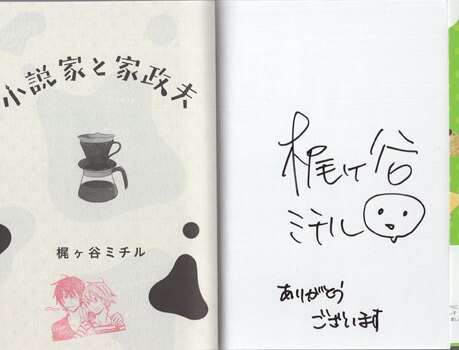 小説家と家政夫
梶ヶ谷ミチル
梶ヶ谷
ミチル
ありがとう
ございます